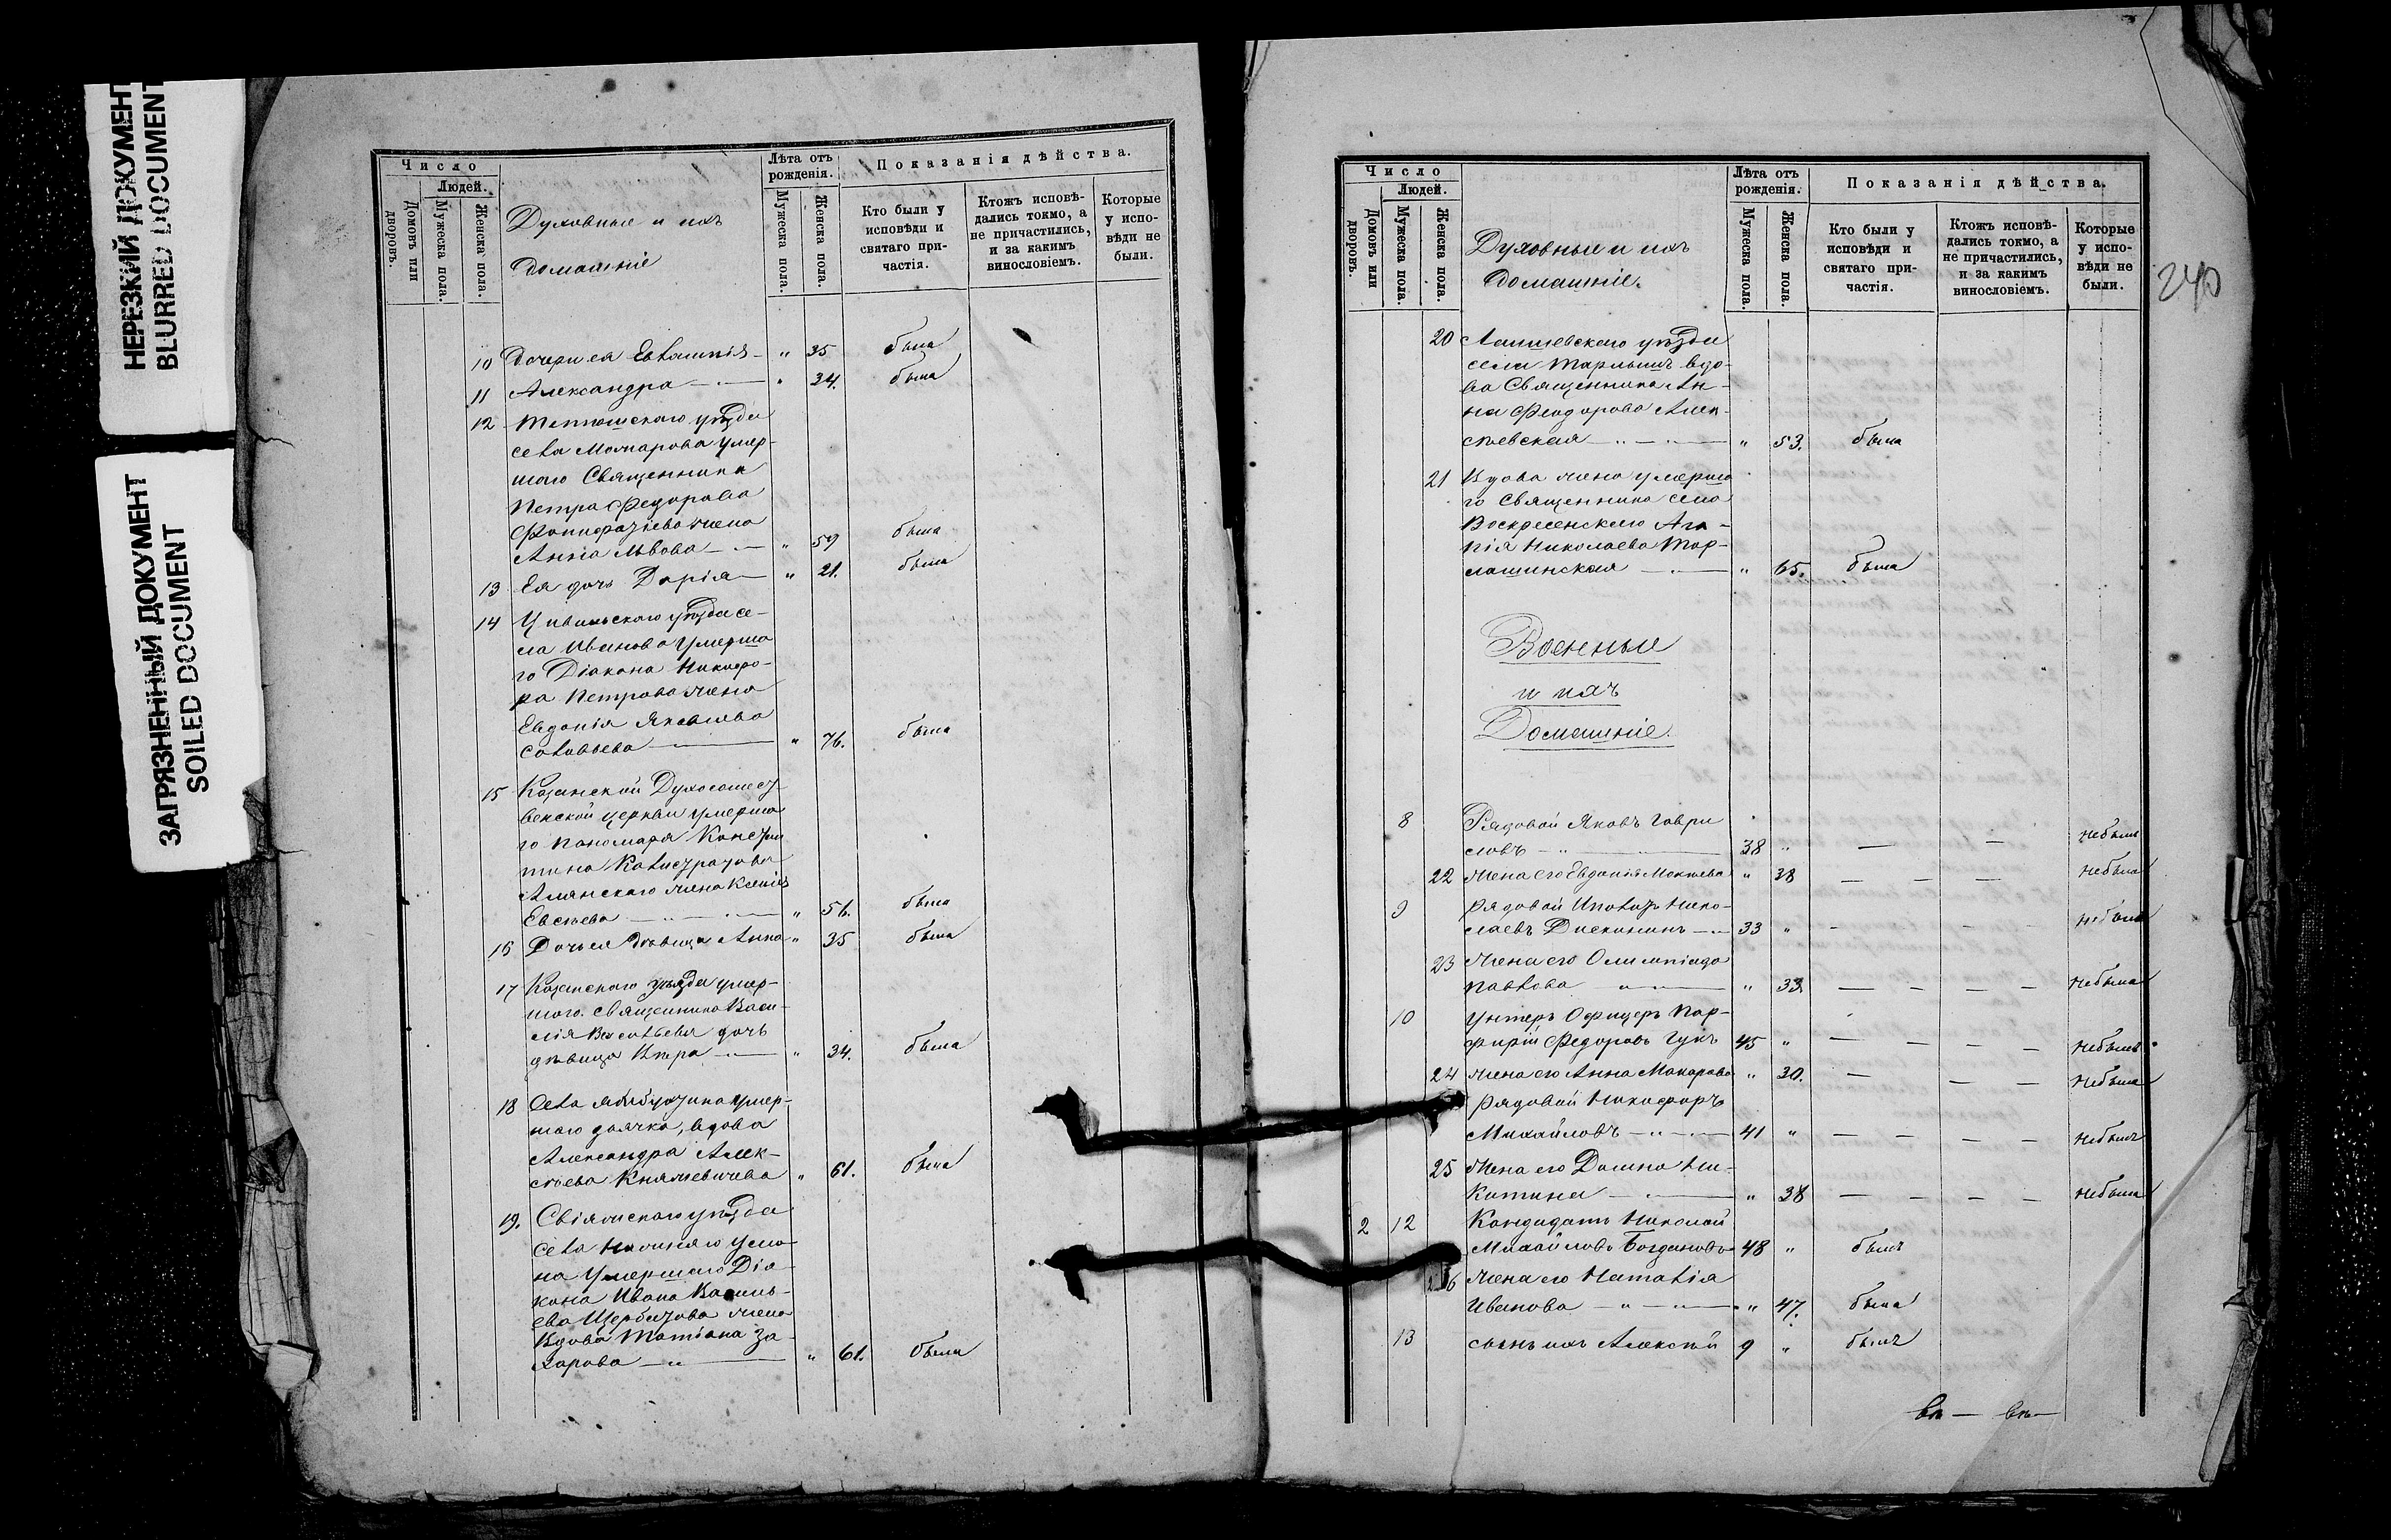 НЕРЕЗКИЙ ДОКУМЕНТ
BLURRED DOCUMENT
ЗАГРЯЗНЕННЫЙ ДОКУМЕНТ
SOILED DOCUMENT
Число
Людей.
Домовъ или дворовъ.
Мужеска пола.
Женска пола.
Духовные и ихъ
домашніе
Лѣта отъ рожденія.
Мужеска пола.
Женска пола.
Показанія дѣйства.
Кто были у исповѣди и святаго причастія.
Ктожъ исповѣдались токмо, а не причастились, и за какимъ винословіемъ.
Которые у исповѣди не были.
10 Дочери ея Евлампія — " 35 была
11 Александра — " 34. была
12 Тетюшскаго уѣзда
села Мамарова умер-
шаго Священника
Петра Федорова
жена
Анна Львова — " 59 была
13 Ея дочь Дарія — " 21. была
14 Цивильскаго уѣзда се-
ла Иванова Умерша
го Діакона Никифо-
ра Петрова жена
Евдокія Яковлева
Соловьева — " 76. была
15 Казанской Духосошест
венской церкви умерша
го пономаря Констан
тина Калистратова
Алянскаго жена Ксенія
Евсѣева — " 56. была
16 Дочь ея дѣвица Анна " 35 была
17 Казанскаго уѣзда умер-
шаго священника Васи-
лія Васильева дочь
дѣвица Вѣра — " 34. была
18 Села умер-
шаго дьячка, вдова
Александра Алек-
сѣева Княжевичева " 61. была
19. Свіяжскаго уѣзда
села Нижняго Усло-
на Умершаго Діа-
кона Ивана Василь-
ева Щербатова жена
Вдова Татіана За-
харова — " 61. была
Число
Людей.
Домовъ или дворовъ.
Мужеска пола.
Женска пола.
Духовные и ихъ
домашніе.
Лѣта отъ рожденія.
Мужеска пола.
Женска пола.
Показанія дѣйства.
Кто были у исповѣди и святаго причастія.
Ктожъ исповѣдались токмо, а не причастились, и за какимъ винословіемъ.
Которые у исповѣди не были.
240
20 Лаишевскаго уѣзда
села Тарлашъ вдо-
ва Священника Ан-
на Феодорова Алек-
сѣевская — " 53. была
21 Вдова жена умерша
го Священника села
Воскресенскаго Ага-
пія Николаева Тар-
лашинская — " 65. была
Военные
и ихъ
Домашніе.
8 Рядовой Яковъ Гаври
ловъ — 38 " — — небылъ
22 Жена его Евдокія Мокѣева " 38 — — — небыла
9 Рядовой Николай Нико-
лаевъ — 33 " — — — небылъ
23 Жена его Олимпіада
Павлова " 33 — — — — небыла
10 Унтеръ Офицеръ Пор-
фирій Федоровъ Гукъ 45 " — — — — небылъ
24 Жена его Анна Макарова " 30. — — — небыла
Рядовой Никифоръ
Михайловъ — 41 " — — — — небылъ
25 Жена его Домна Ни-
китина — " 38 — — — — небыла
2 12 Кандидатъ Николай
Михайловъ Богдановъ 48 " былъ
26 Жена его Наталія
Иванова — " 47. была
13 сынъ ихъ Алексѣй 9 " былъ